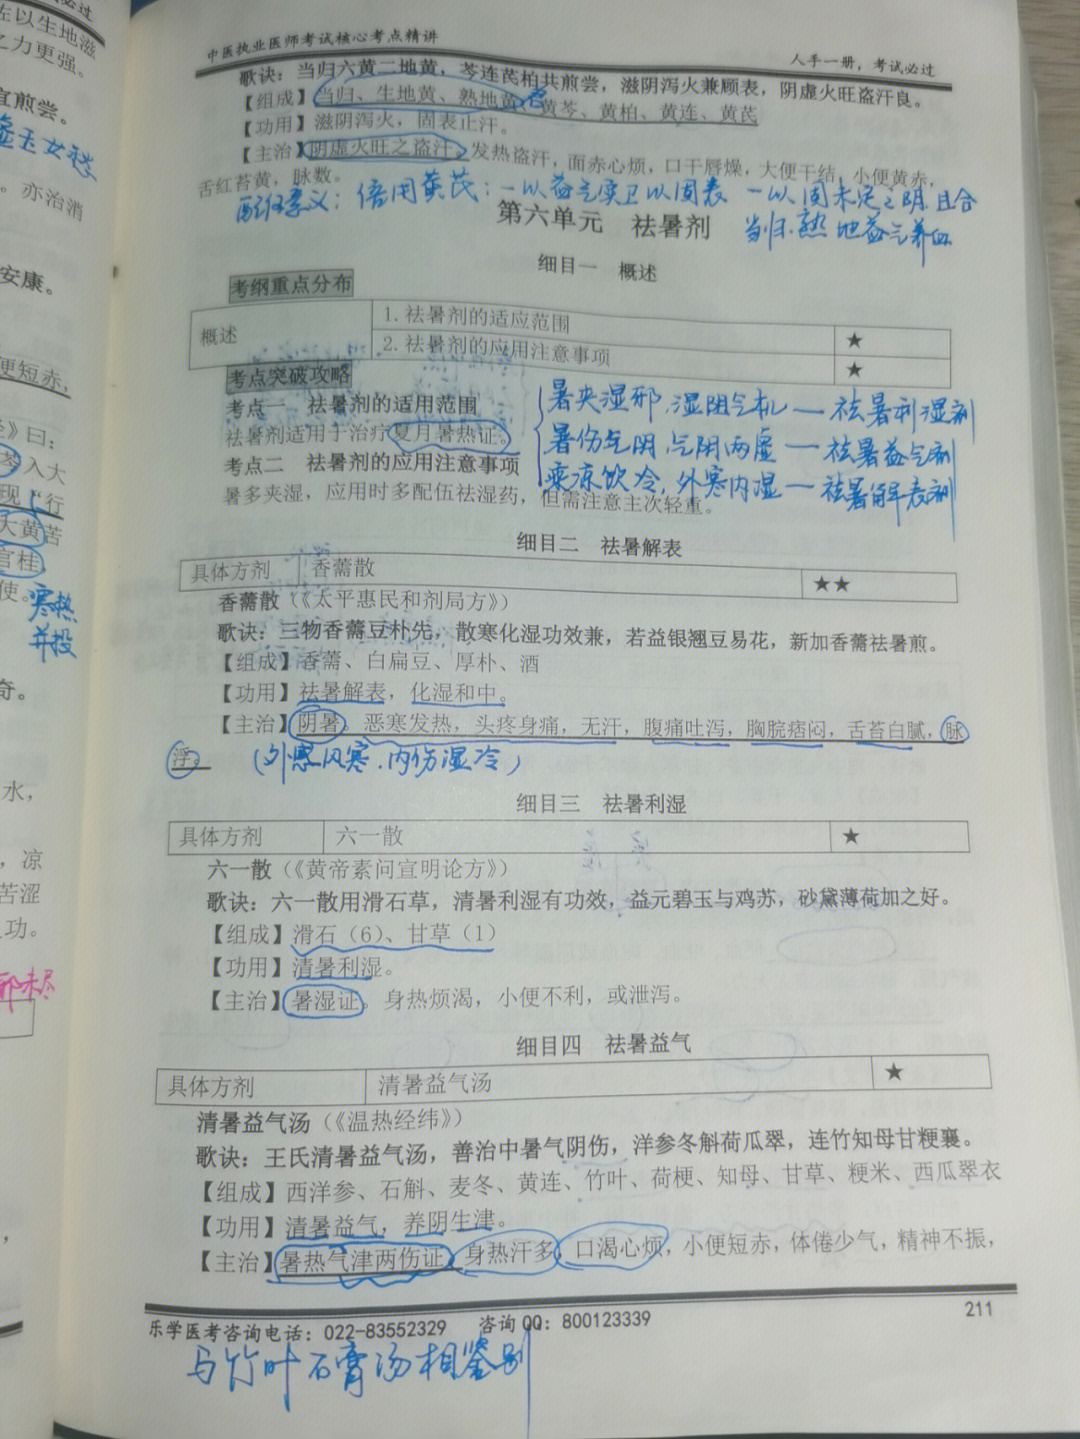 必过
左以生地滋
之力更强。
宜煎尝。
盏玉女煎
。亦治消
安康。
便短赤，
》曰：
芩入大
现“行
大黄苦
官桂
使。
寒热
并投
奇。
水，
，凉
苦涩
功。
邪未尽
中医执业医师考试核心考点精讲
人手一册，考试必过
歌诀：当归六黄二地黄，芩连芪柏共煎尝，滋阴泻火兼顾表，阴虚火旺盗汗良。
【组成】当归、生地黄、熟地黄、黄芩、黄柏、黄连、黄芪
君
【功用】滋阴泻火，固表止汗。
【主治】阴虚火旺之盗汗。发热盗汗，面赤心烦，口干唇燥，大便干结，小便黄赤，
舌红苔黄，脉数。
配伍意义：倍用黄芪：一以益气实卫以固表 一以固未定之阴，且合
当归、熟地益气养血
第六单元 祛暑剂
细目一 概述
考纲重点分布
概述
1.祛暑剂的适应范围 ★
2.祛暑剂的应用注意事项 ★
考点突破攻略
考点一 祛暑剂的适用范围
祛暑剂适用于治疗夏月暑热证。
考点二 祛暑剂的应用注意事项
暑多夹湿，应用时多配伍祛湿药，但需注意主次轻重。
暑夹湿邪，湿阻气机—祛暑利湿剂
暑伤气阴，气阴两虚—祛暑益气剂
乘凉饮冷，外寒内湿—祛暑解表剂
细目二 祛暑解表
具体方剂 香薷散 ★★
香薷散（《太平惠民和剂局方》）
歌诀：三物香薷豆朴先，散寒化湿功效兼，若益银翘豆易花，新加香薷祛暑煎。
【组成】香薷、白扁豆、厚朴、酒
【功用】祛暑解表，化湿和中。
【主治】阴暑。恶寒发热，头疼身痛，无汗，腹痛吐泻，胸脘痞闷，舌苔白腻，脉
浮。
（外感风寒、内伤湿冷）
细目三 祛暑利湿
具体方剂 六一散 ★
六一散（《黄帝素问宣明论方》）
歌诀：六一散用滑石草，清暑利湿有功效，益元碧玉与鸡苏，砂黛薄荷加之好。
【组成】滑石（6）、甘草（1）
【功用】清暑利湿。
【主治】暑湿证。身热烦渴，小便不利，或泄泻。
细目四 祛暑益气
具体方剂 清暑益气汤 ★
清暑益气汤（《温热经纬》）
歌诀：王氏清暑益气汤，善治中暑气阴伤，洋参冬斛荷瓜翠，连竹知母甘粳襄。
【组成】西洋参、石斛、麦冬、黄连、竹叶、荷梗、知母、甘草、粳米、西瓜翠衣
【功用】清暑益气，养阴生津。
【主治】暑热气津两伤证。身热汗多，口渴心烦，小便短赤，体倦少气，精神不振，
211
乐学医考咨询电话：022-83552329 咨询QQ：800123339
与竹叶石膏汤相鉴别